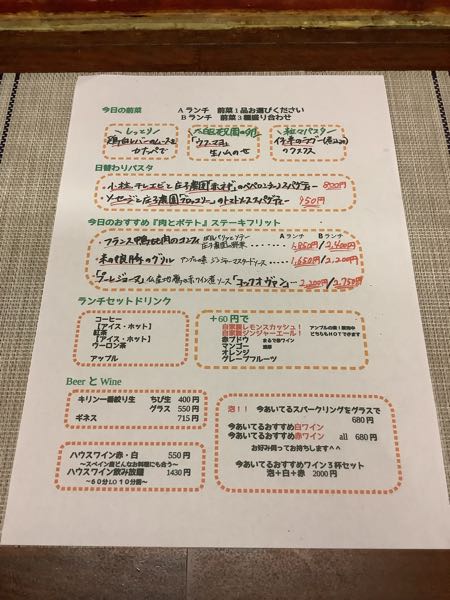 今日の前菜 Aランチ 前菜1品お選びください
Bランチ 前菜3種盛り合わせ
しっとり
鶏白レバーのムースと
カナッペで
農園の卵
「ウフマヨ」
生ハムのせ
粒々パスタ
のクスクス
日替わりパスタ
小柱、チレエビと庄子農園 のペペロンチーノスパゲティー 800円
ソーセージと庄子農園「ブロッコリー」のトマトソーススパゲティー 950円
今日のおすすめ『肉とポテト』ステーキフリット
Aランチ Bランチ
フランス鴨もも肉のコンフィ 1,850円/2,400円
豚のグリル ジンジャーマスタードソース 1,650円/2,200円
鶏の赤ワイン煮ソース「コックオヴァン」 2,200/2,750円
ランチセットドリンク
コーヒー
【アイス・ホット】
紅茶
【アイス・ホット】
ウーロン茶
アップル
+60円で
自家製レモンスカッシュ!
自家製ジンジャーエール! どちらもHOTできます
赤ブドウ まるで赤ワイン
マンゴー 濃厚
オレンジ
グレープフルーツ
Beer と Wine
キリン一番絞り生 ちび生 400円
グラス 550円
ギネス 715円
ハウスワイン赤・白 550円
~スペイン産どんなお料理にも合う~
ハウスワイン飲み放題 1430円
~60分LO10分前~
泡!! 今あいてるスパークリングをグラスで
680円
今あいてるおすすめ白ワイン
今あいてるおすすめ赤ワイン all 680円
お好み伺ってお持ちします^^
今あいてるおすすめワイン3杯セット
泡+白+赤 2000円